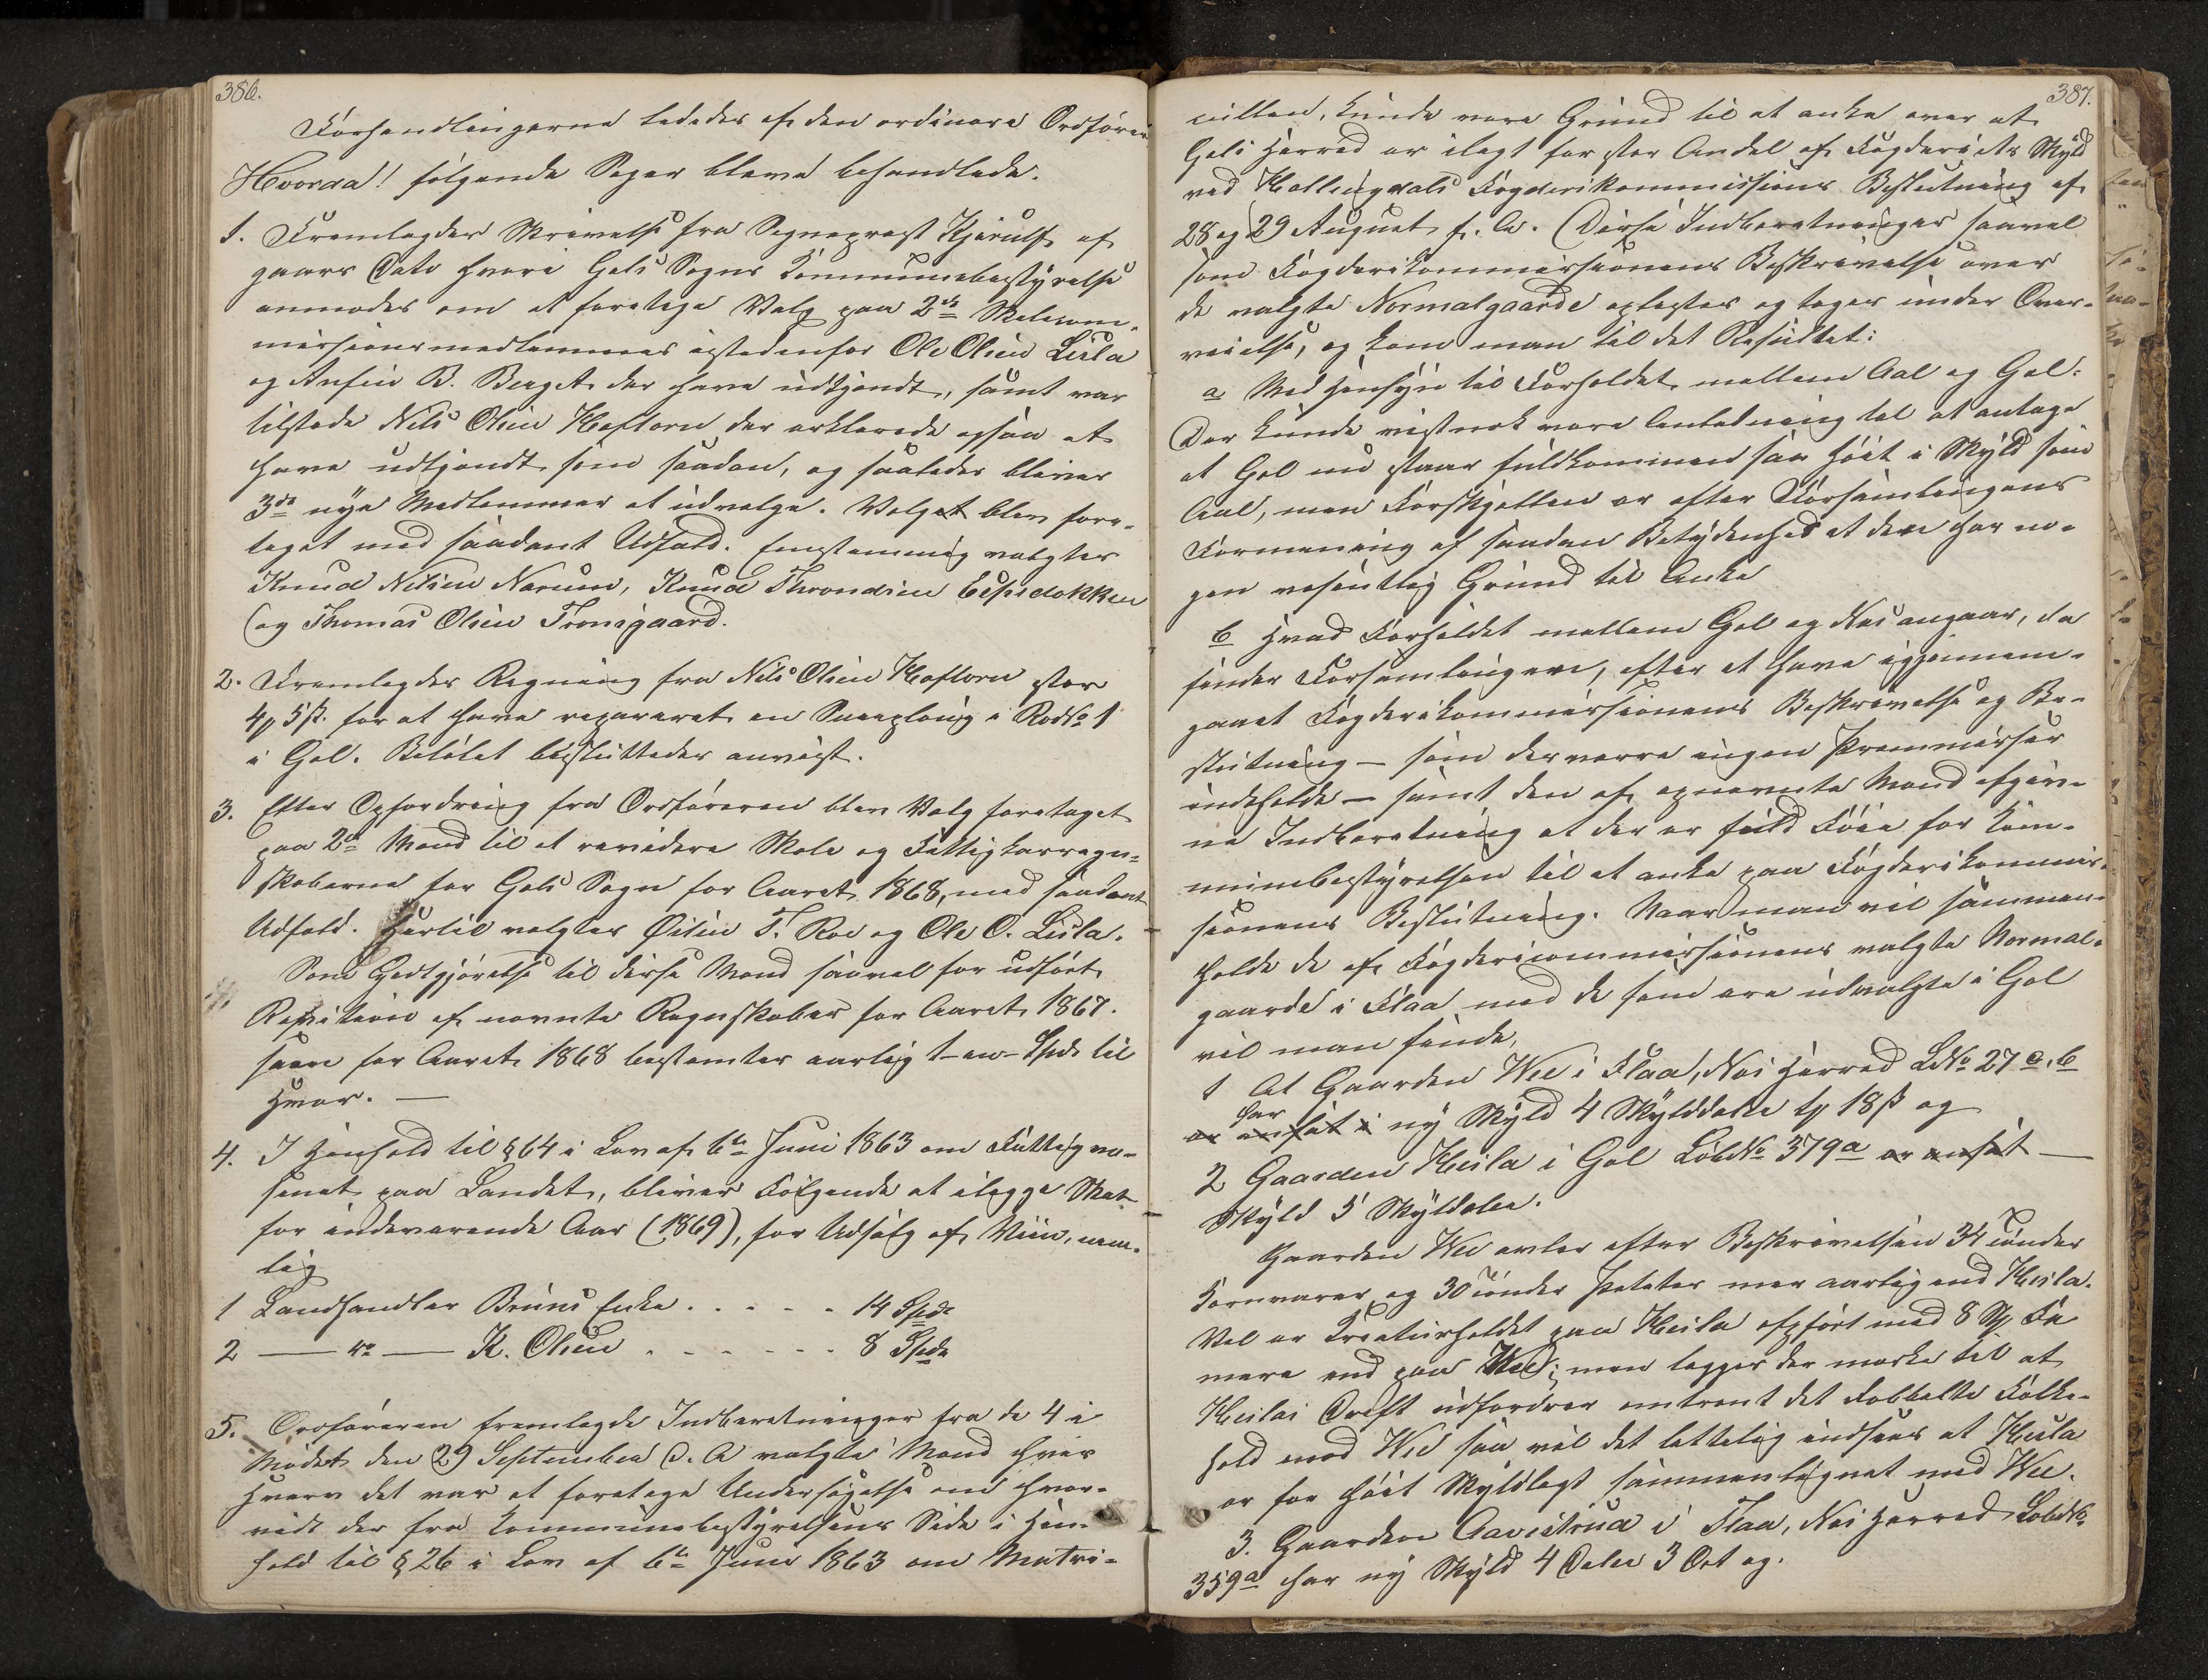 386.
Forhandlingerne lededes af den ordinære Ordfører
Hvoraa! følgende Sager bleve behandlede.
1. Fremlagdes Skrivelse fra Sogneprest Kjerulf af
gaars Dato hvori Gols Sogns Kommunebestyrelse
anmodes om at foretage Valg paa 2de Skolecom-
missionsmedlemmer istedenfor Ole Olsen Lisla
og Anfin B. Berget der have udtjendt, samt var
tilstede Nils Olsen Hoftorn der erklærede ogsaa at
have udtjendt som saadan, og saaledes bliver
3de nye Medlemmer at udvælge. Valget blev fore-
taget med saadant Udfald. Enstemmig valgtes
Knud Nilsen Narum, Knud Throndsen Eispedokken
og Thomas Olsen Tronsgaard.
2. Fremlagdes Regning fra Nils Olsen Hoftorn stor
4 5 ß. for at have repareret en Sneeploug i Rode No 1
i Gol. Beløbet besluttedes anvist.
3. Efter Opfordring fra Ordføreren blev Valg foretaget
paa 2de Mænd til at revidere Skole og Fattigkasseregn-
skaberne for Gols Sogn for Aaret 1868, med saadant
Udfald. Hertil valgtes Øisten T. Roe og Ole O. Lisla.
Som Godtgjørelse til disse Mænd saavel for udført
Revision af nævnte Regnskaber for Aaret 1867.
som for Aaret 1868 bestemtes aarlig 1 – en – Spd. til
Hver. —
4. I Henhold til § 64 i Lov af 6te Juni 1863 om Fattigvæ-
senet paa Landet, bliver Følgende at ilægge Skat
for indeværende Aar (1869), for Udsalg af Viin, nem-
lig
1 Landhandler Bruns Enke . . . . . 14 Spd.
2 — do — K. Olsen . . . . . . . 8 Spd.
5. Ordføreren fremlagde Indberetninger fra de 4 i
Mødet den 29 September d. A valgte Mænd hvis
Hverv det var at foretage Undersøgelse om hvor-
vidt der fra Kommunebestyrelsens Side i Hen-
hold til § 26 i Lov af 6te Juni 1863 om Matri-
387.
culen, kunde være Grund til at anke over at
Gols Herred er ilagt for stor Andel af Fogderiets Skyld
ved Hallingdals Fogderikommissions Beslutning af
28 og 29 August f. A. Disse Indberetninger saavel
som Fogderikommissionens Beskrivelse over
de valgte Normalgaarde oplæstes og toges under Over-
veielse, og kom man til det Resultat:
a Med Hensyn til Forholdet mellem Aal og Gol:
Der kunde vistnok være Anledning til at antage
at Gol nu staar fuldkommen saa høit i Skyld som
Aal, men Forskjellen er efter Forsamlingens
Formening af saadan Betydenhed at der har no-
gen væsentlig Grund til Anke
b Hvad Forholdet mellem Gol og Næs angaar, da
finder Forsamlingen, efter at have igjennem-
gaaet Fogderikommissionens Beskrivelse og Be-
slutning — som desværre ingen Præmisser
indeholde — samt den af opnævnte Mænd afgiv-
ne Indberetning at der er fuld Føie for Kom-
munebestyrelsen til at anke paa Fogderikommis-
sionens Beslutning. Naar man vil sammen-
holde de af Fogdericommissionens valgte Normal-
gaarde i Flaa med de som ere udvalgte i Gol
vil man finde,
1 At Gaarden Wee i Flaa, Næs Herred LNo 27 a. b
har
er ansat i ny Skyld 4 Skylddaler 18 ß og
2 Gaarden Heisla i Gol LøbNo 379a er ansat —
Skyld 5 Skyldaler.
Gaarden Wee avler efter Beskrivelsen 34 Tønder
Kornvarer og 30 Tønder Poteter mer aarlig end Heisla.
Vel er Kreaturholdet paa Heisla opført med 8 Stk Fæ
mere end paa Wee; men lægges der mærke til at
Heislas Drift udfordrer omtrent det dobbelte Folke-
hold mod Wee saa vil det lettelig indsees at Heisla
er for høit Skyldlagt sammenlignet med Wee.
3. Gaarden Aavestrud i Flaa, Næs Herred LøbeNo
359a har ny Skyld 4 Daler 3 Ort og.